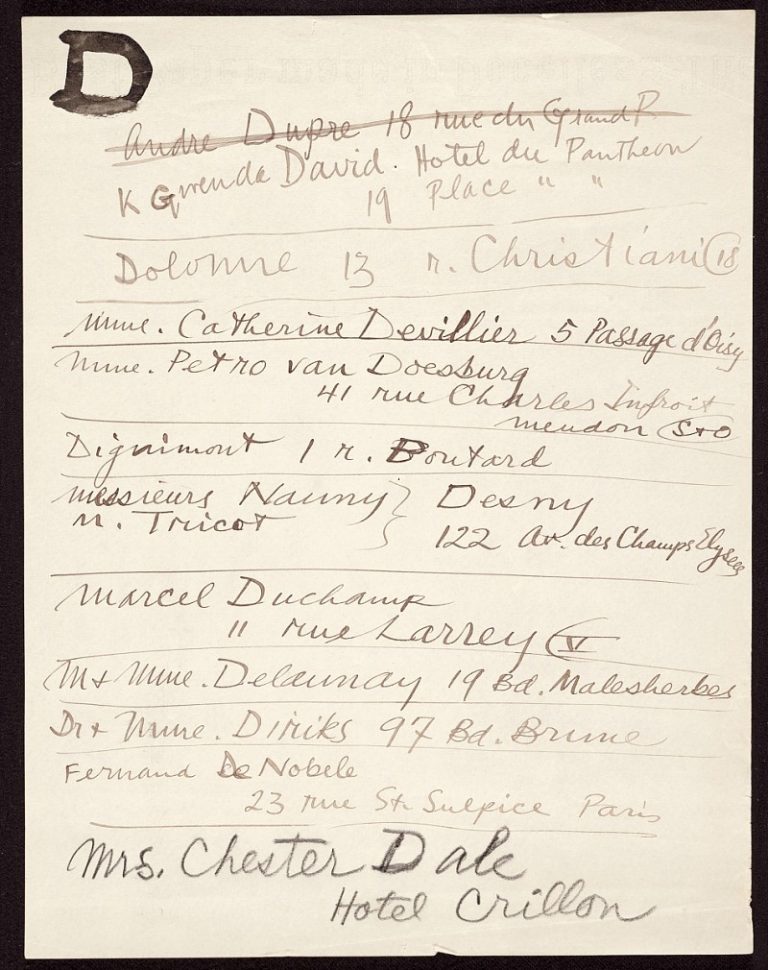 D
Andre Dupre 18 rue du Grand P.
K Gwenda David. Hotel du Pantheon
19 Place " "
Dolonne 13 r. Christiani 18
Mme. Catherine Devillier 5 Passage d'Oisy
Mme. Petro van Doesburg
41 rue Charles Infroit
Meudon S+O
Dignimont 1 r. Boutard
Messieurs Nauny } Desny
M. Tricot
122 Av. des Champs Elysees
Marcel Duchamp
11 rue Larrey V
M + Mme. Delaunay 19 Bd. Malesherbes
Dr + Mme. Diriks 97 Bd. Brune
Fernand De Nobele
23 rue St. Sulpice Paris
Mrs. Chester Dale
Hotel Crillon